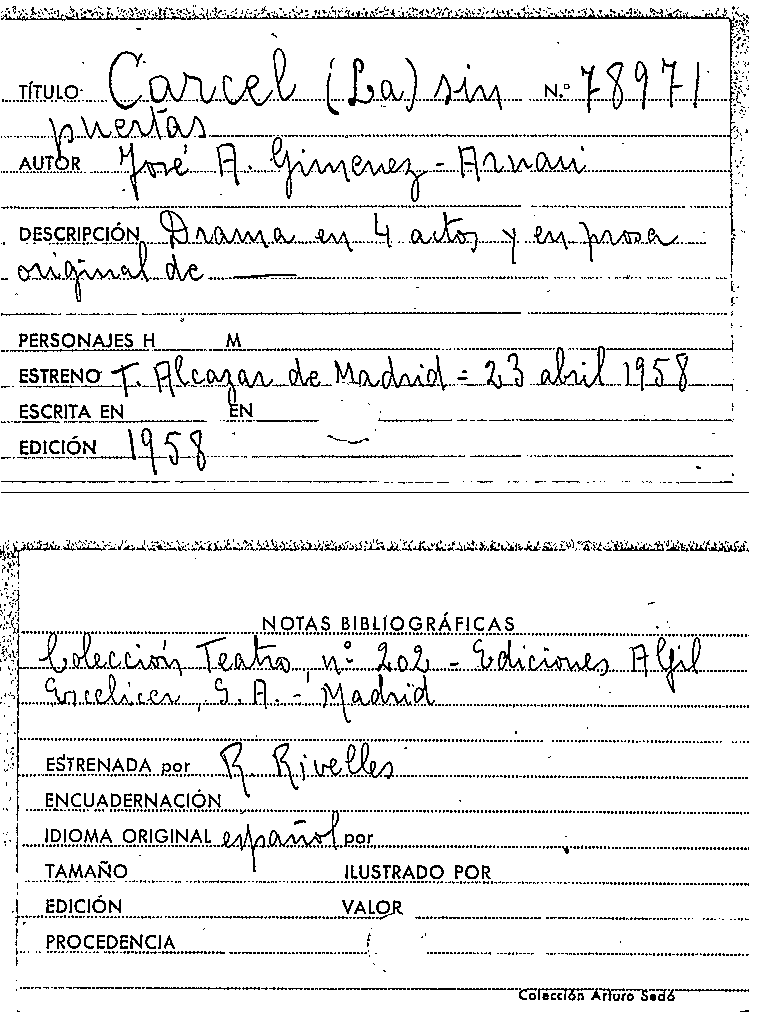 TÍTULO Carcel (La) sin N.º 78971
puertas
AUTOR José A. Gimenez-Arnau
DESCRIPCIÓN Drama en 4 actos y en prosa
original de ——
PERSONAJES H M
ESTRENO T. Alcazar de Madrid = 23 abril 1958
ESCRITA EN EN
EDICIÓN 1958
NOTAS BIBLIOGRÁFICAS
Colección Teatro, nº 202 - Ediciones Alfil
Escelicer, S. A. - Madrid
ESTRENADA por R. Rivelles
ENCUADERNACIÓN
IDIOMA ORIGINAL español por
TAMAÑO ILUSTRADO POR
EDICIÓN VALOR
PROCEDENCIA
Colección Arturo Sedó